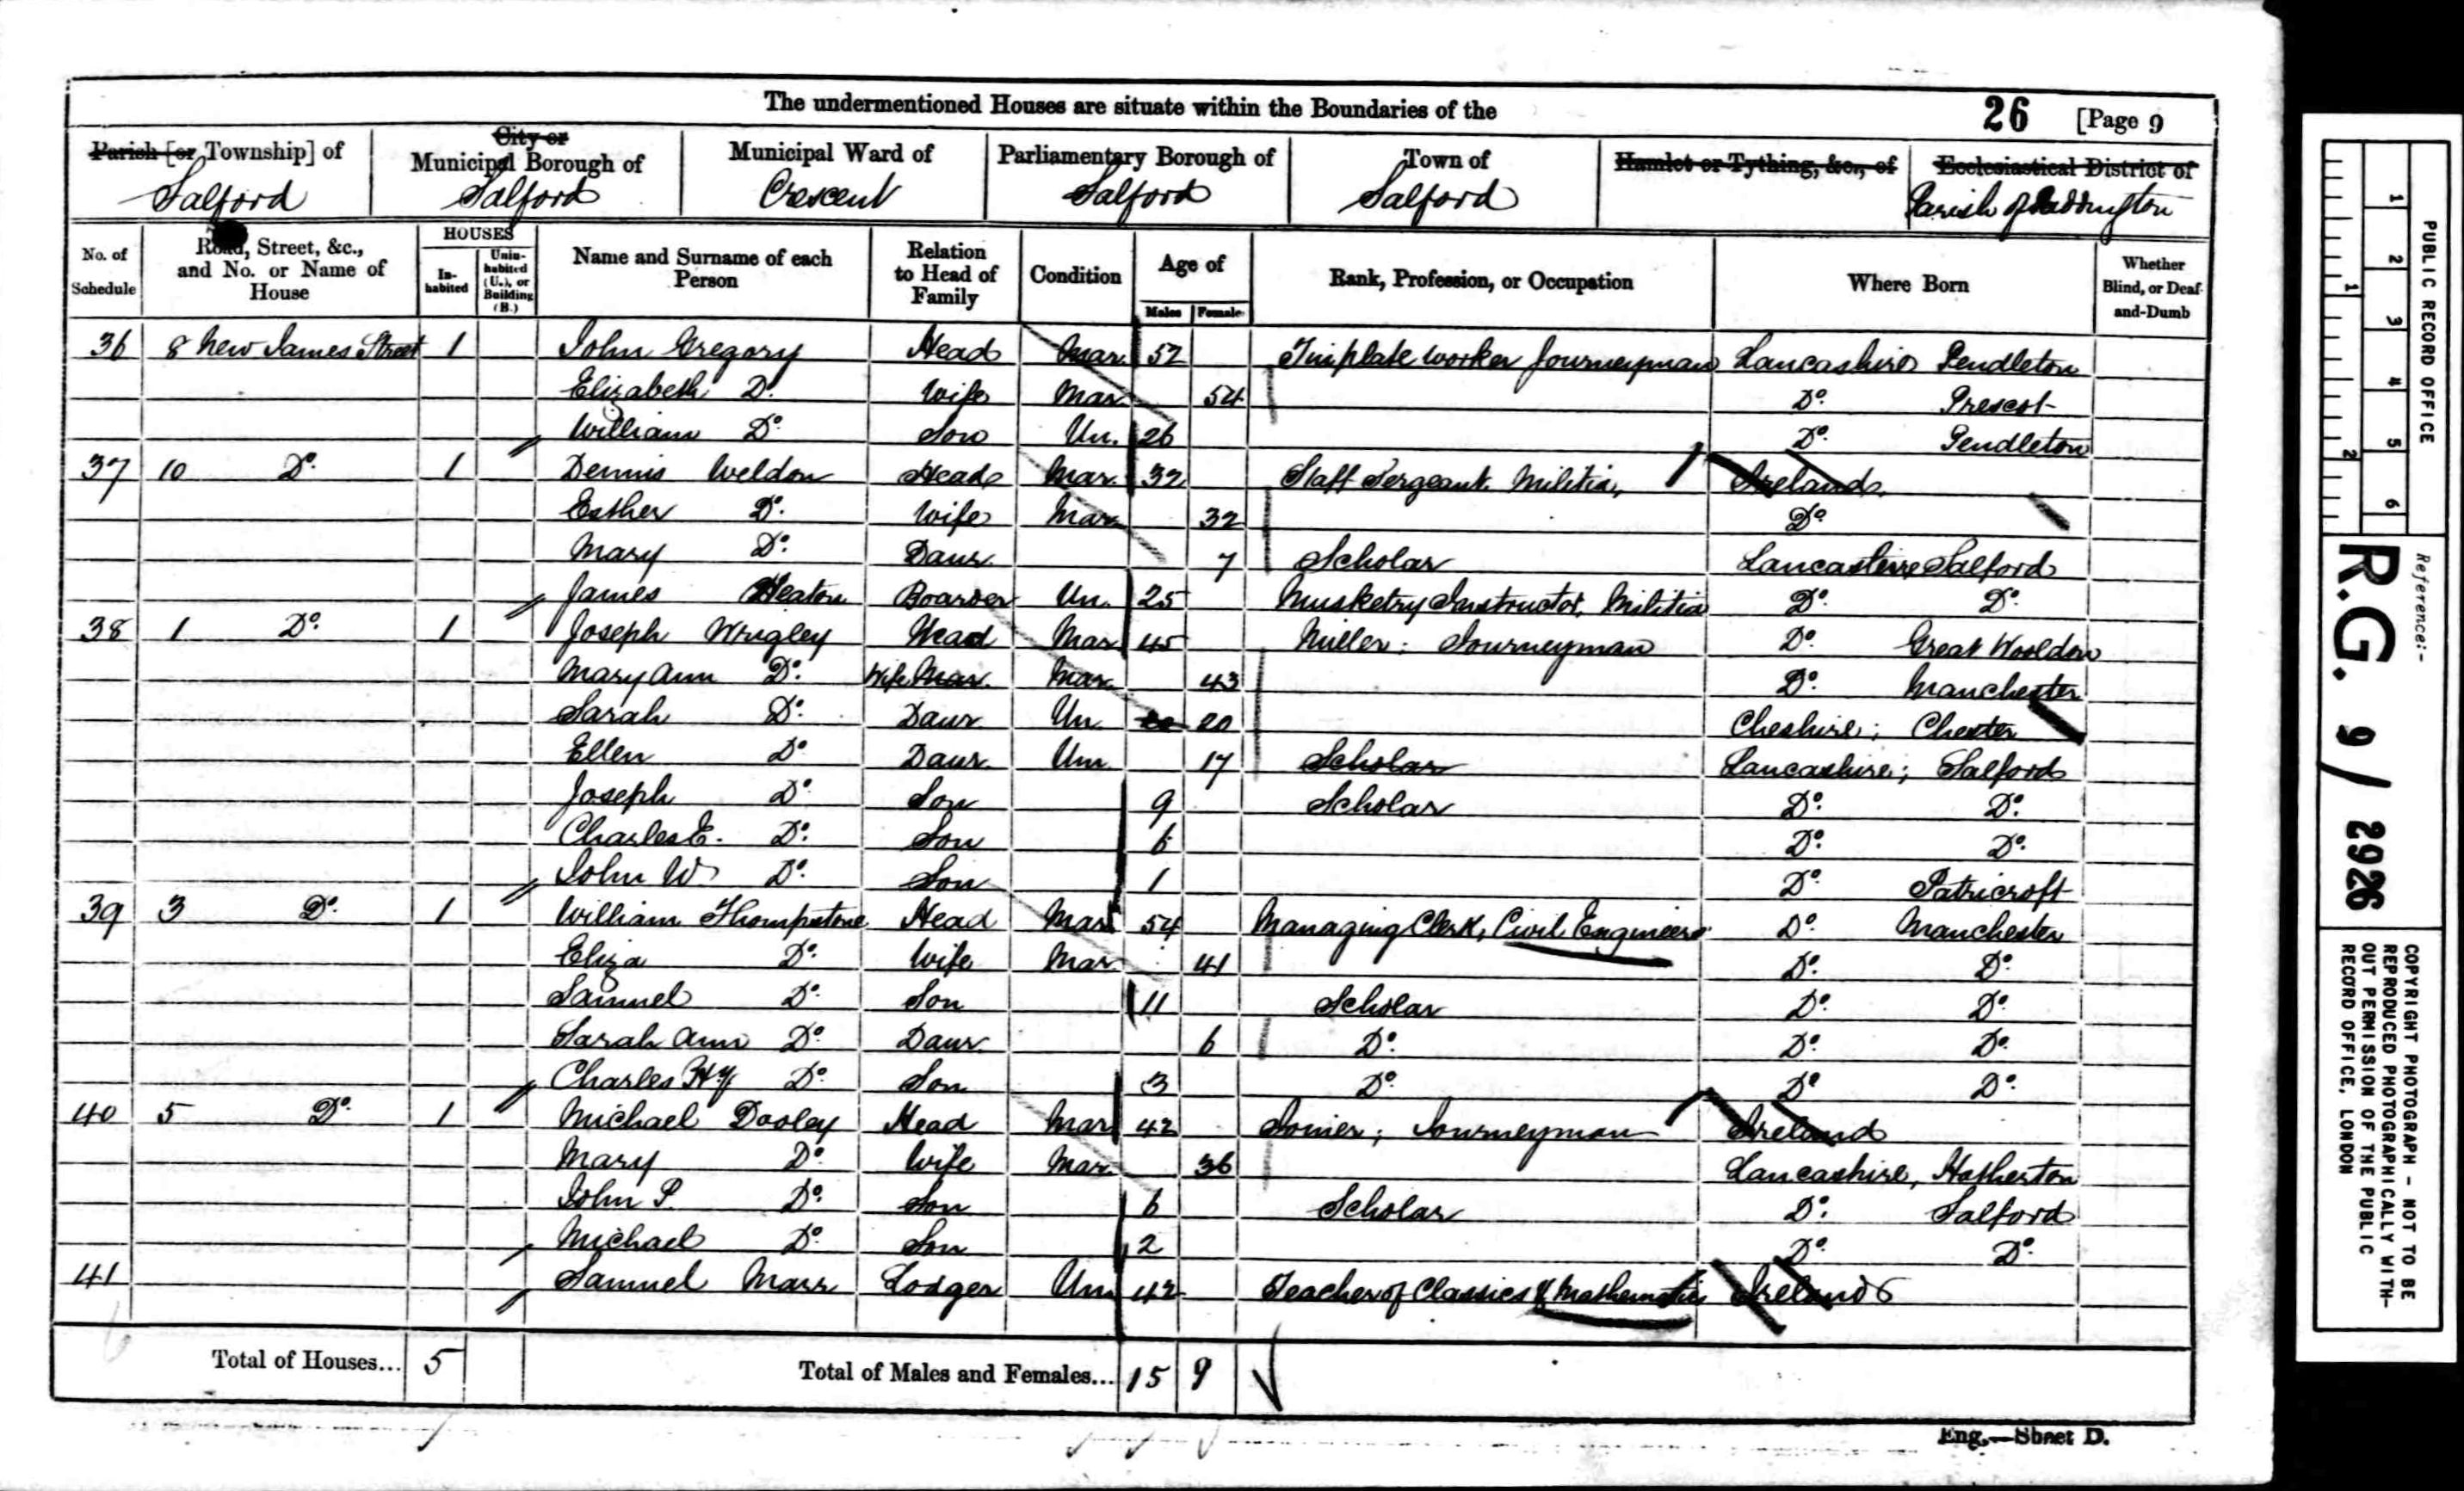 The undermentioned Houses are situate within the Boundaries of the 26 [Page 9
Parish [or Township] of City or Municipal Borough of Municipal Ward of Parliamentary Borough of Town of Hamlet or Tything, &c., of Ecclesiastical District of
Salford Salford Crescent Salford Salford Parish of Paddington
No. of Schedule Road, Street, &c., and No. or Name of House HOUSES Inhabited Uninhabited (U.), or Building (B.) Name and Surname of each Person Relation to Head of Family Condition Age of Males Females Rank, Profession, or Occupation Where Born Whether Blind, or Deaf-and-Dumb
36 8 New James Street 1 John Gregory Head Mar. 52 Tinplate worker Journeyman Lancashire Pendleton
Elizabeth Do. Wife Mar. 54 Do. Prescot
William Do. Son Un. 26 Do. Pendleton
37 10 Do. 1 Dennis Weldon Head Mar. 32 Staff Sergeant. Militia, Ireland.
Esther Do. Wife Mar. 32 Do.
Mary Do. Daur. 7 Scholar Lancashire Salford
James Heaton Boarder Un. 25 Musketry Instructor, Militia Do. Do.
38 1 Do. 1 Joseph Wrigley Head Mar. 45 Miller; Journeyman Do. Great Wooldon
Mary Ann Do. Wife Mar. Mar. 43 Do. Manchester
Sarah Do. Daur. Un. 20 20 Cheshire; Chester
Ellen Do. Daur. Un. 17 Scholar Lancashire; Salford
Joseph Do. Son 9 Scholar Do. Do.
Charles E. Do. Son 6 Do. Do.
John W. Do. Son 1 Do. Patricroft
39 3 Do. 1 William Thompstone Head Mar. 54 Managing Clerk, Civil Engineers Do. Manchester
Eliza Do. Wife Mar. 41 Do. Do.
Samuel Do. Son 11 Scholar Do. Do.
Sarah Ann Do. Daur. 6 Do. Do. Do.
Charles Hy Do. Son 3 Do. Do. Do.
40 5 Do. 1 Michael Dooley Head Mar. 42 Joiner; Journeyman Ireland
Mary Do. Wife Mar. 36 Lancashire, Hatherton
John P. Do. Son 6 Scholar Do. Salford
Michael Do. Son 2 Do. Do.
41 Samuel Marr Lodger Un. 42 Teacher of Classics & Mathematics Ireland
Total of Houses... 5 Total of Males and Females... 15 9
Eng.—Sheet D.
PUBLIC RECORD OFFICE
1 2 3 4 5 6
1 2
Reference:-
R.G. 9/ 2926
COPYRIGHT PHOTOGRAPH - NOT TO BE
REPRODUCED PHOTOGRAPHICALLY WITH-
OUT PERMISSION OF THE PUBLIC
RECORD OFFICE, LONDON